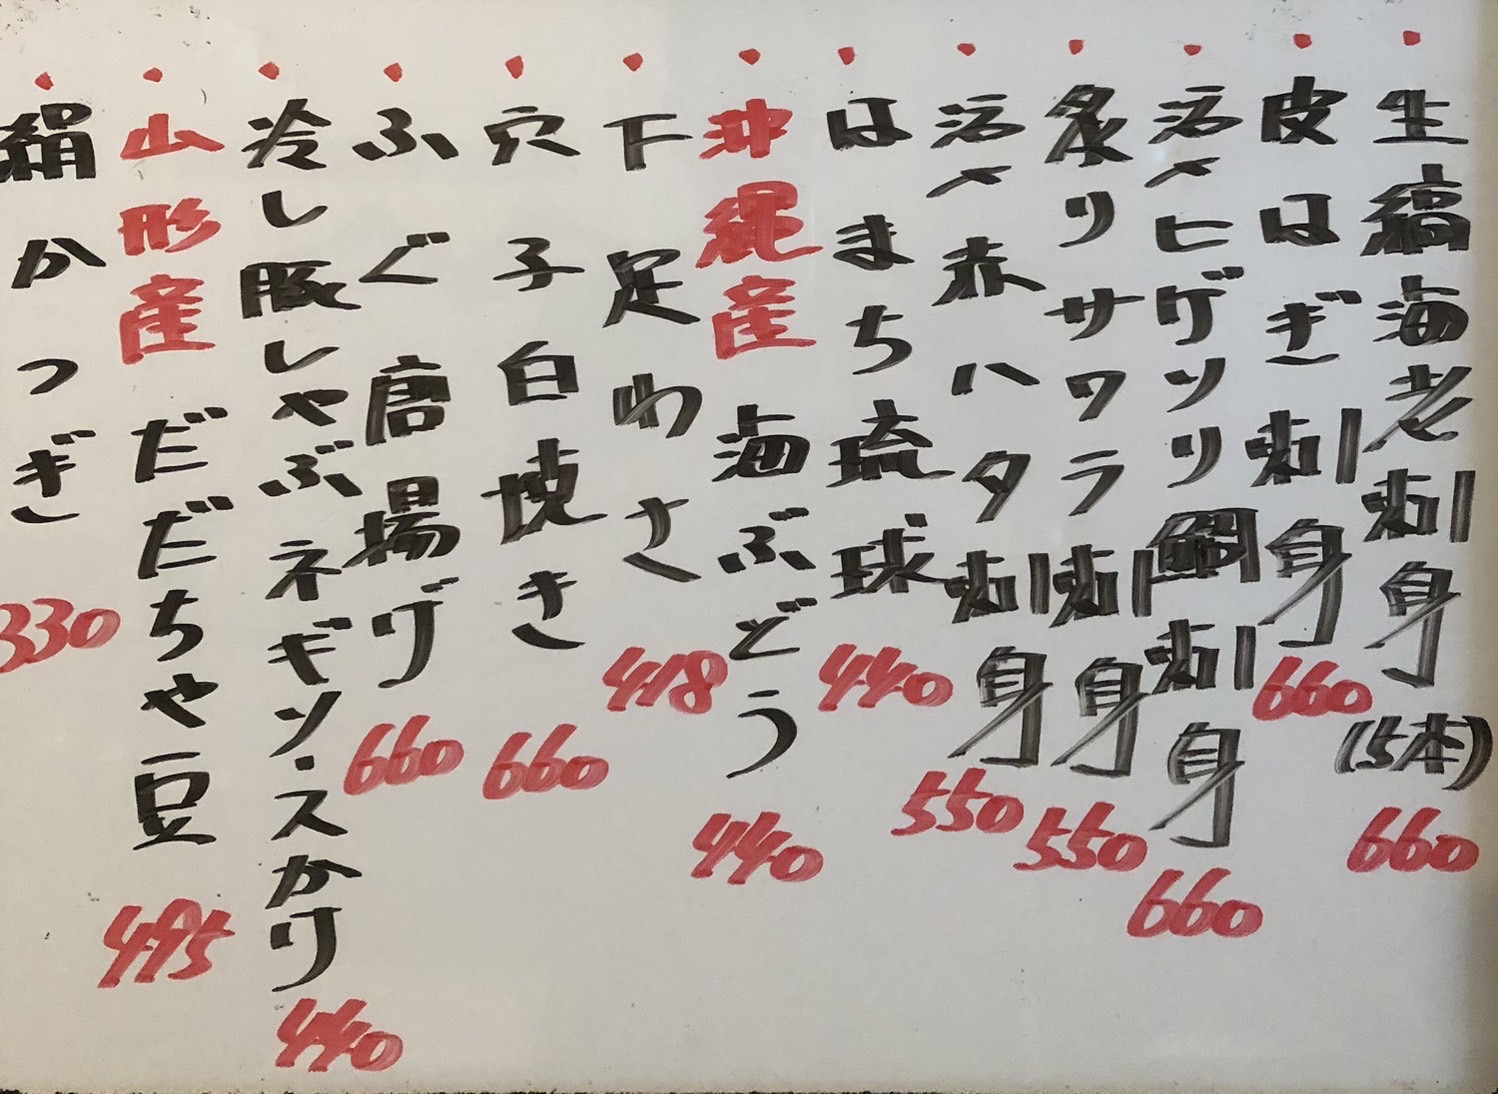 ・生縞海老刺身(5本) 660
・皮はぎ刺身 660
・活〆ヒゲソリ鯛刺身 660
・炙りサワラ刺身 550
・活〆赤ハタ刺身 550
・はまち琉球 440
・沖縄産 海ぶどう 440
・下足わさ 418
・穴子白焼き 660
・ふぐ唐揚げ 660
・冷し豚しゃぶネギソースかけ 440
・山形産 だだちゃ豆 495
・絹かつぎ 330